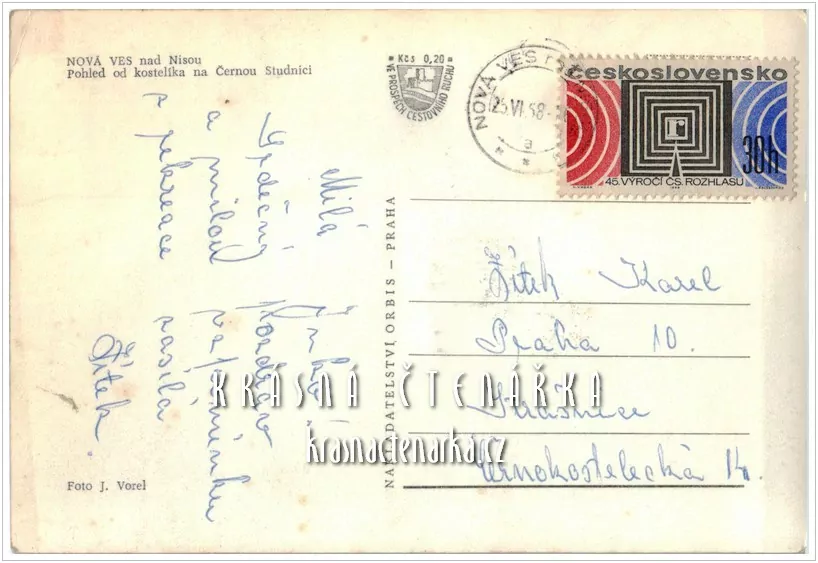 NOVÁ VES nad Nisou
Pohled od kostelíka na Černou Studnici
Kčs 0,20
VE PROSPĚCH CESTOVNÍHO RUCHU
NOVÁ VES
25.VI.68
a
československo
r
30h
45. VÝROČÍ ČS. ROZHLASU
Milá
Srdečný pozdrav
a milou vzpomínku
z rekreace zasílá
Žítek.
NAKLADATELSTVÍ ORBIS – PRAHA
Žítek Karel
Praha 10.
Strašnice
Černokostelecká
KRÁSNÁ ČTENÁŘKA
krasnactenarka.cz
Foto J. Vorel